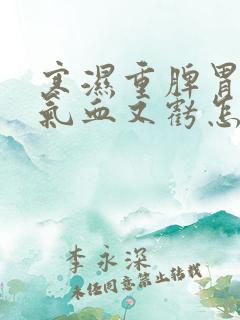 寒濕重脾胃
氣血又虧怎
李永深
未经同意禁止转载